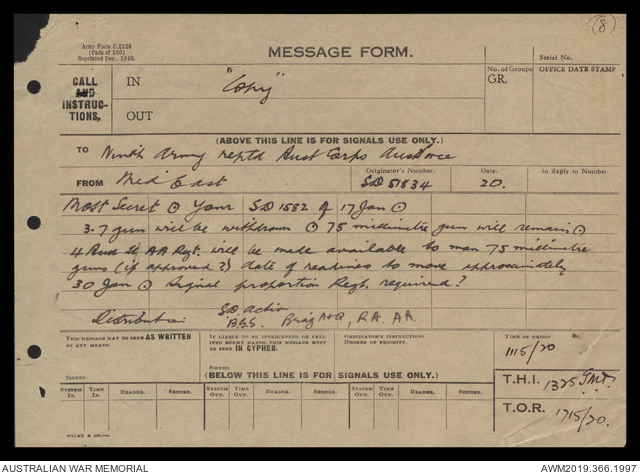 (8)
Army Form C.2128
(Pads of 100)
Reprinted Dec., 1940.
MESSAGE FORM.
Serial No.
CALL AND INSTRUC- TIONS.
IN
"Copy"
No. of Groups
GR.
OFFICE DATE STAMP
OUT
(ABOVE THIS LINE IS FOR SIGNALS USE ONLY.)
TO Ninth Army reptd Aust Corps Austforce
FROM Mid East
Originator's Number.
SD 51834
Date.
20.
In Reply to Number
Most Secret ⊙ Your SD1582 of 17 Jan ⊙
3.7 gun will be withdrawn ⊙ 75 millimetre gun will remain ⊙
4 Aust Lt AA Regt. will be made available to man 75 millimetre
guns (if approved?) date of readiness to move approximately
30 Jan ⊙ Signal proportion Regt. required?
Distribution: S.D. Action
B.G.S. Brig A+Q RA. AA
THIS MESSAGE MAY BE SENT AS WRITTEN BY ANY MEANS.
SIGNED
IF LIABLE TO BE INTERCEPTED OR FALL INTO ENEMY HANDS, THIS MESSAGE MUST BE SENT IN CIPHER.
SIGNED
ORIGINATOR'S INSTRUCTIONS
DEGREE OF PRIORITY.
TIME OF ORIGIN
1115/20
(BELOW THIS LINE IS FOR SIGNALS USE ONLY.)
T.H.I. 1325 GMT.
SYSTEM IN. TIME IN. READER. SENDER. SYSTEM OUT. TIME OUT. READER. SENDER. SYSTEM OUT. TIME OUT. READER. SENDER.
T.O.R. 1715/20.
WILKE & CO.—
AUSTRALIAN WAR MEMORIAL
AWM2019.366.1997